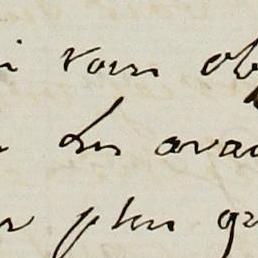 i vous ob
des avan
plus gr